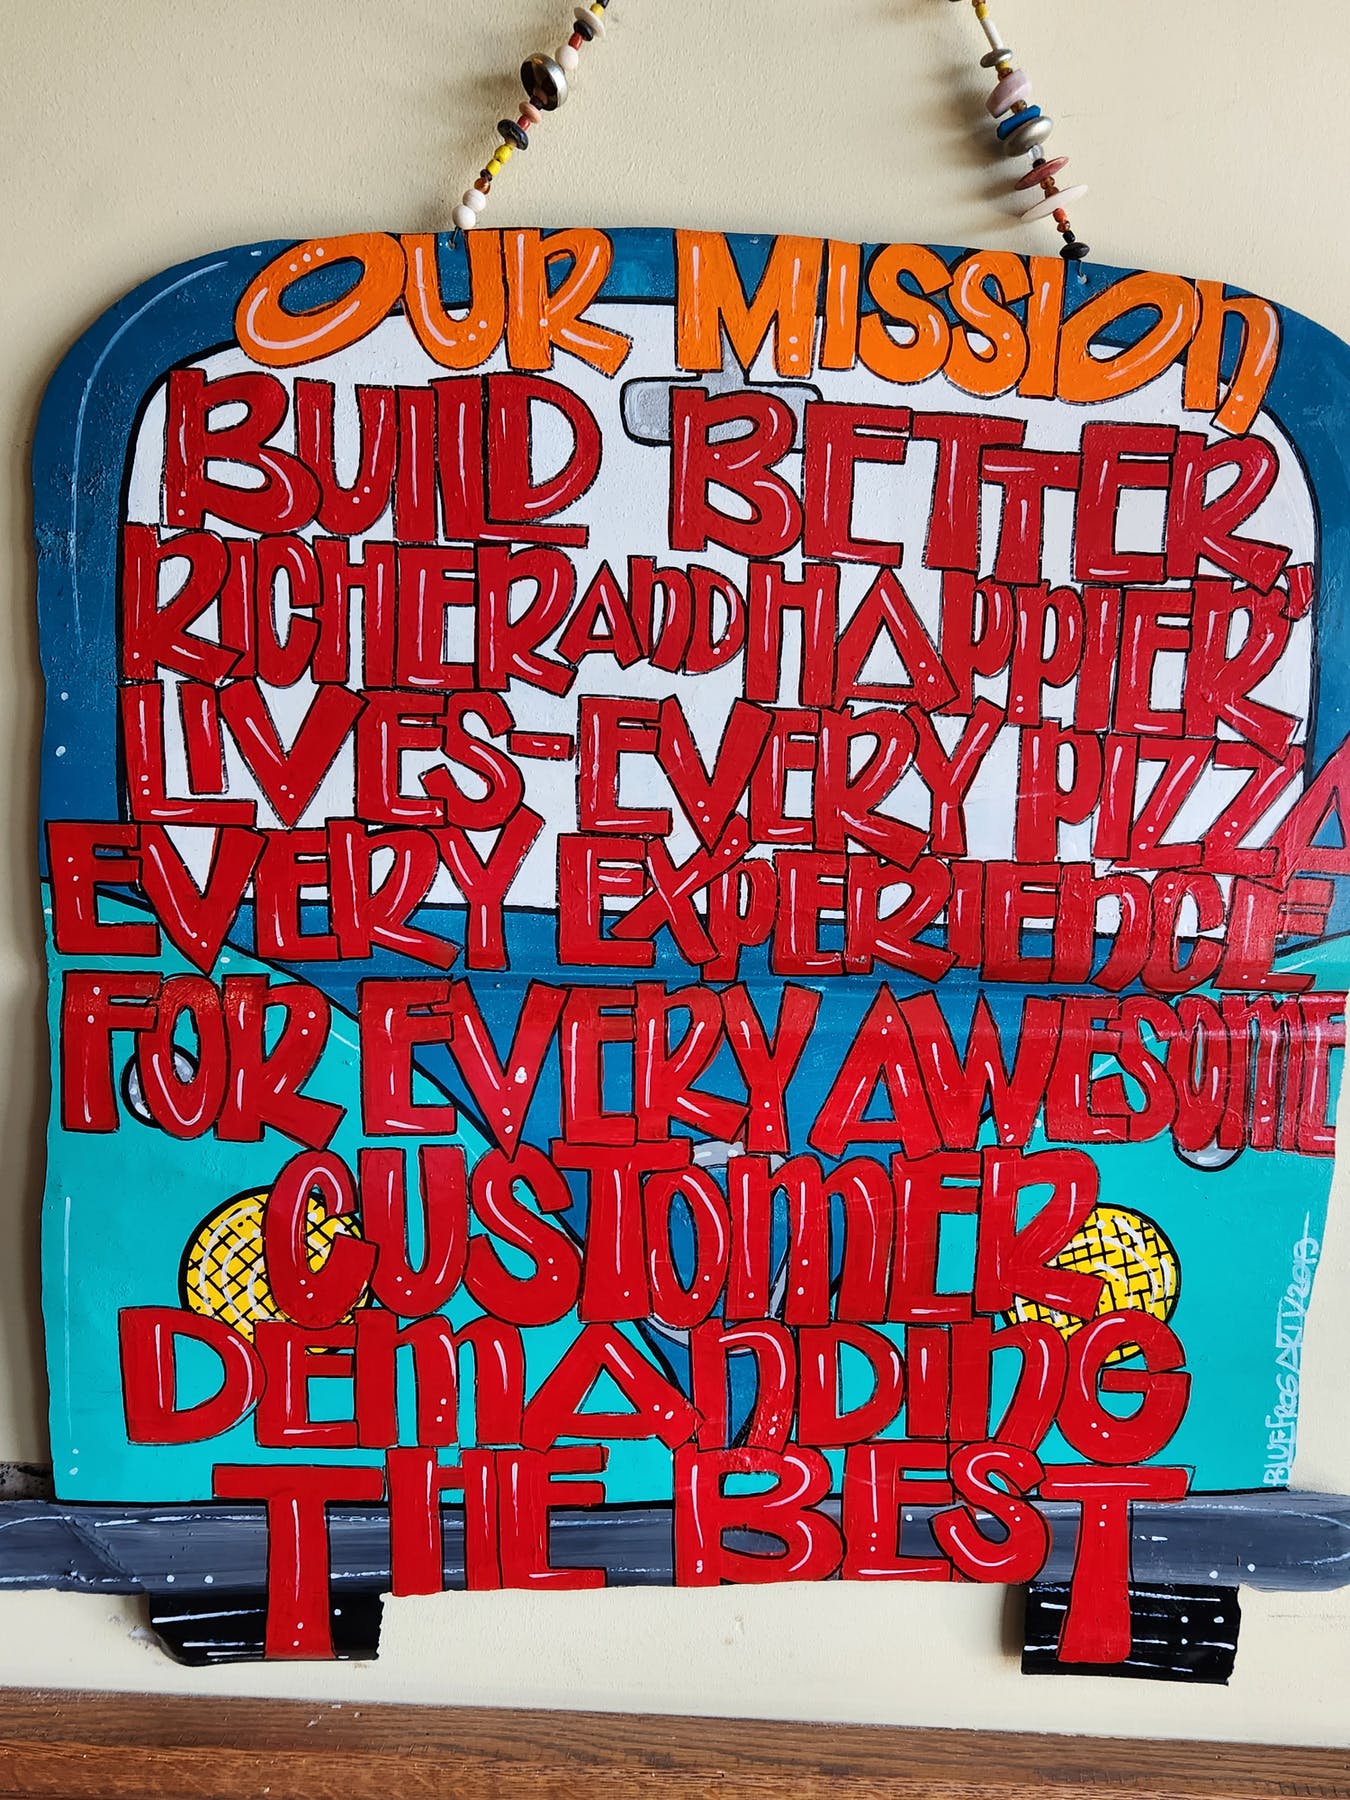 OUR MISSION
BUILD BETTER,
RICHER AND HAPPIER'
LIVES-EVERY PIZZA
EVERY EXPERIENCE
FOR EVERY AWESOME
CUSTOMER
DEMANDING
THE BEST
BLUEFROGARTV2013